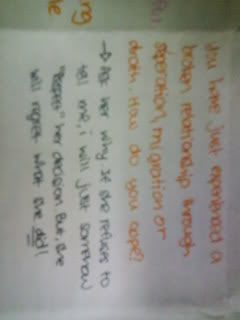 You have just experienced a
broken relationship through
separation, migration or
death. How do you cope?
→ Ask her why. If she refuses to
tell me, i will just somehow
"Respect" her decision. But, she
will regret what she did!